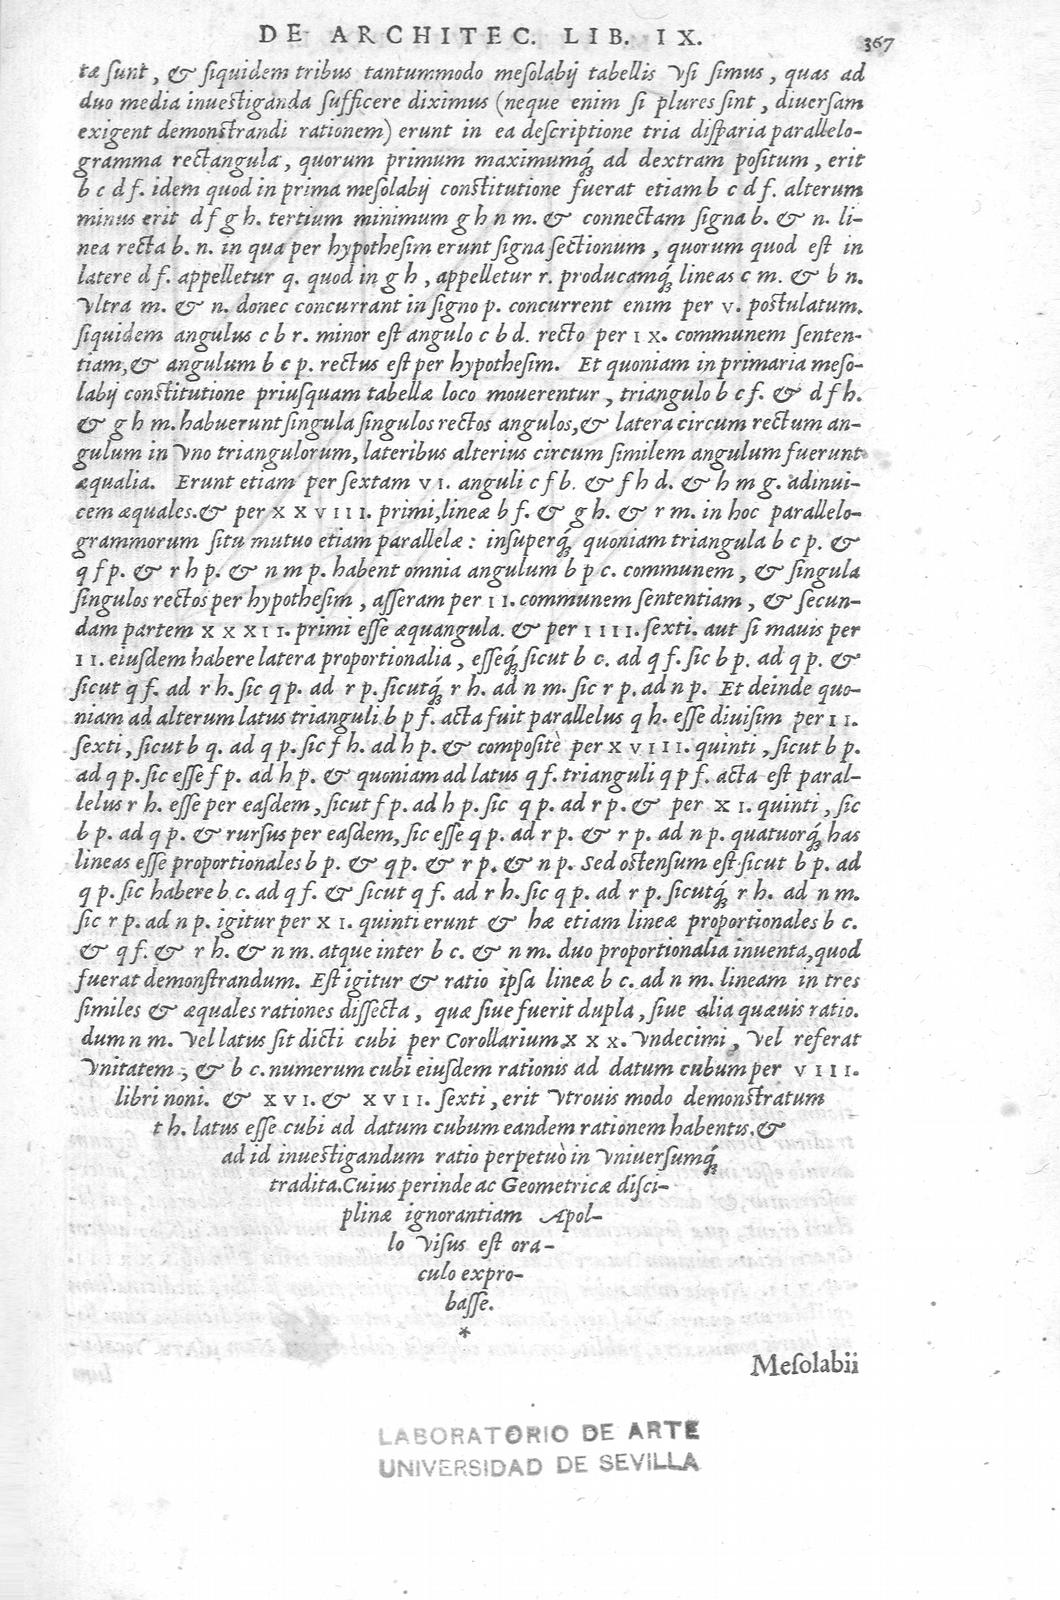 DE ARCHITEC. LIB. IX. 367
tæ sunt, & siquidem tribus tantummodo mesolabij tabellis vsi simus, quas ad
duo media inuestiganda sufficere diximus (neque enim si plures sint, diuersam
exigent demonstrandi rationem) erunt in ea descriptione tria disparia parallelo-
gramma rectangula, quorum primum maximumq́; ad dextram positum, erit
b c d f. idem quod in prima mesolabij constitutione fuerat etiam b c d f. alterum
minus erit d f g h. tertium minimum g h n m. & connectam signa b. & n. li-
nea recta b. n. in qua per hypothesim erunt signa sectionum, quorum quod est in
latere d f. appelletur q. quod in g h, appelletur r. producamq́; lineas c m. & b n.
vltra m. & n. donec concurrant in signo p. concurrent enim per v. postulatum.
siquidem angulus c b r. minor est angulo c b d. recto per IX. communem senten-
tiam, & angulum b c p. rectus est per hypothesim. Et quoniam in primaria meso-
labij constitutione priusquam tabellæ loco mouerentur, triangulo b c f. & d f h.
& g h m. habuerunt singula singulos rectos angulos, & latera circum rectum an-
gulum in vno triangulorum, lateribus alterius circum similem angulum fuerunt
æqualia. Erunt etiam per sextam VI. anguli c f b. & f h d. & h m g. adinui-
cem æquales. & per XXVIII. primi, lineæ b f. & g h. & r m. in hoc parallelo-
grammorum situ mutuo etiam parallelæ: insuperq́; quoniam triangula b c p. &
q f p. & r h p. & n m p. habent omnia angulum b p c. communem, & singula
singulos rectos per hypothesim, asseram per II. communem sententiam, & secun-
dam partem XXXII. primi esse æquangula. & per IIII. sexti. aut si mauis per
II. eiusdem habere latera proportionalia, esseq́; sicut b c. ad q f. sic b p. ad q p. &
sicut q f. ad r h. sic q p. ad r p. sicutq́; r h. ad n m. sic r p. ad n p. Et deinde quo-
niam ad alterum latus trianguli b p f. acta fuit parallelus q h. esse diuisim per II.
sexti, sicut b q. ad q p. sic f h. ad h p. & compositè per XVIII. quinti, sicut b p.
ad q p. sic esse f p. ad h p. & quoniam ad latus q f. trianguli q p f. acta est paral-
lelus r h. esse per easdem, sicut f p. ad h p. sic q p. ad r p. & per XI. quinti, sic
b p. ad q p. & rursus per easdem, sic esse q p. ad r p. & r p. ad n p. quatuorq́; has
lineas esse proportionales b p. & q p. & r p. & n p. Sed ostensum est sicut b p. ad
q p. sic habere b c. ad q f. & sicut q f. ad r h. sic q p. ad r p. sicutq́; r h. ad n m.
sic r p. ad n p. igitur per XI. quinti erunt & hæ etiam lineæ proportionales b c.
& q f. & r h. & n m. atque inter b c. & n m. duo proportionalia inuenta, quod
fuerat demonstrandum. Est igitur & ratio ipsa lineæ b c. ad n m. lineam in tres
similes & æquales rationes dissecta, quæ siue fuerit dupla, siue alia quæuis ratio.
dum n m. vel latus sit dicti cubi per Corollarium XXX. vndecimi, vel referat
vnitatem, & b c. numerum cubi eiusdem rationis ad datum cubum per VIII.
libri noni. & XVI. & XVII. sexti, erit vtrouis modo demonstratum
t h. latus esse cubi ad datum cubum eandem rationem habentis, &
ad id inuestigandum ratio perpetuò in vniuersumq́;
tradita. Cuius perinde ac Geometricæ disci-
plinæ ignorantiam Apol-
lo visus est ora-
culo expro-
basse.
*
Mesolabii
LABORATORIO DE ARTE
UNIVERSIDAD DE SEVILLA